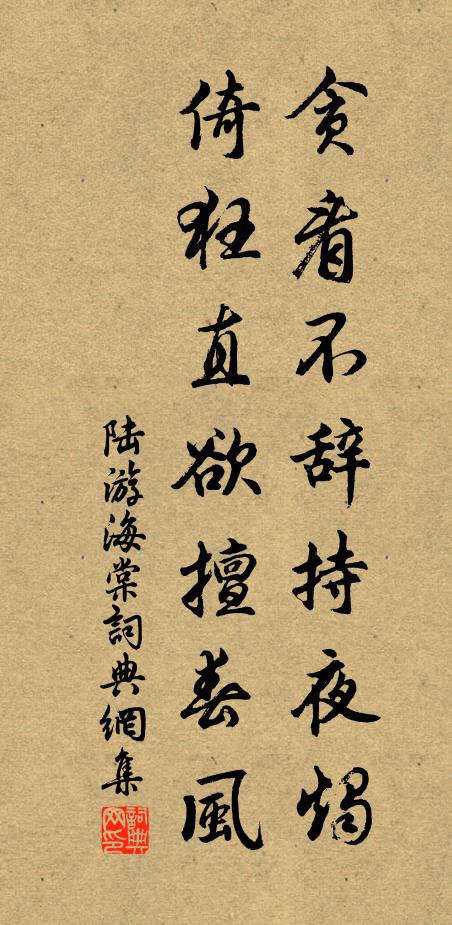 贪看不辞持夜燭
倚狂直欲擅春風
陆游海棠詞典網集
詞典网印